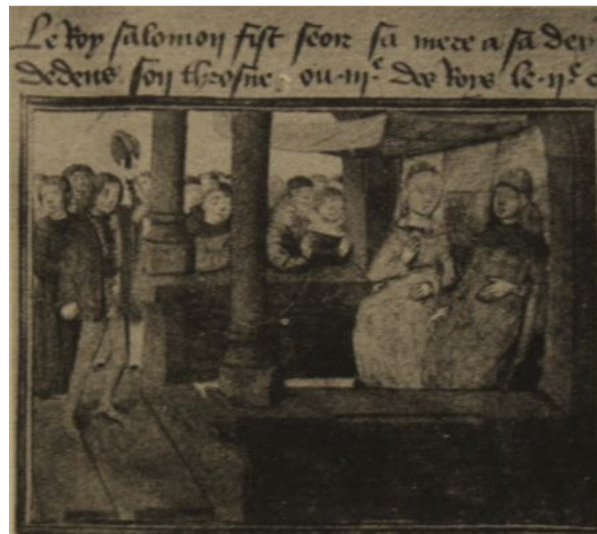 Le Roy salomon fist seoir sa mere a sa dex
dedens son throsne. ou .iii.e des Roys le .ii.e c